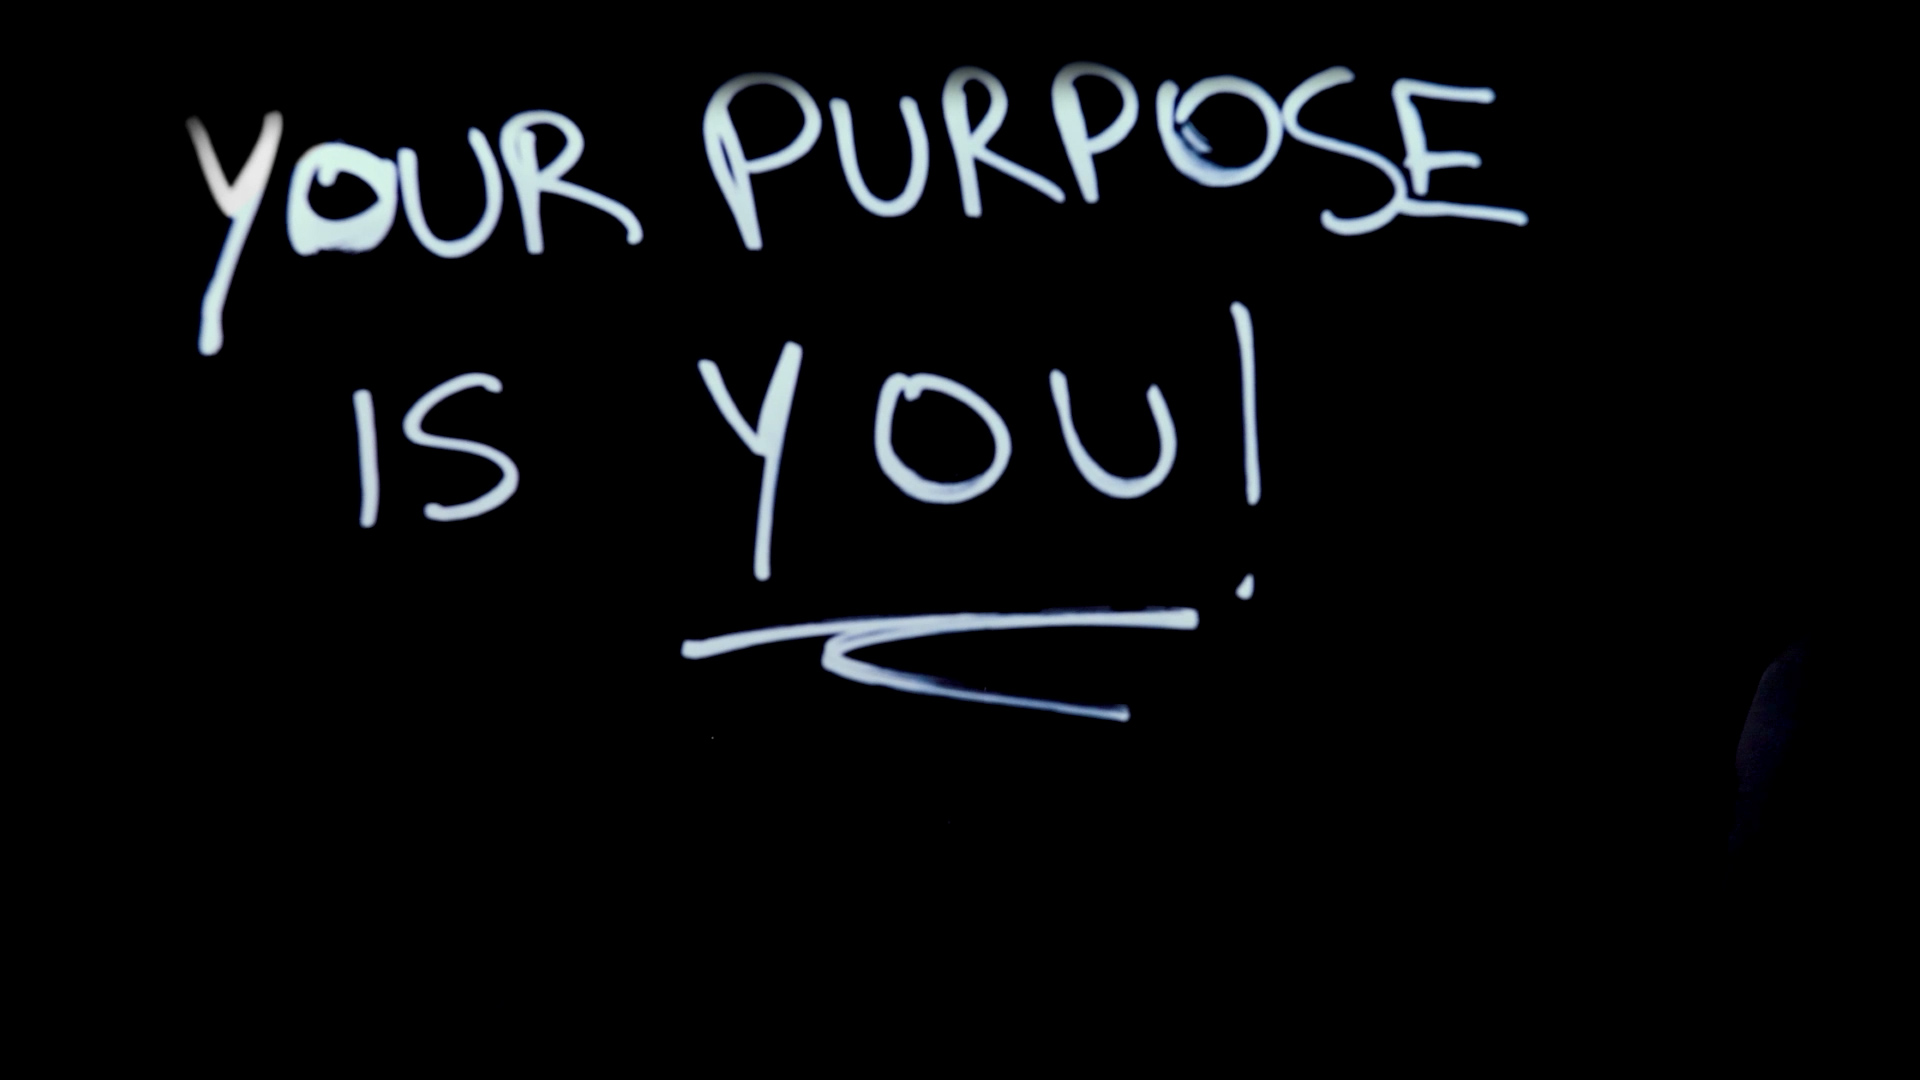 YOUR PURPOSE
IS YOU!